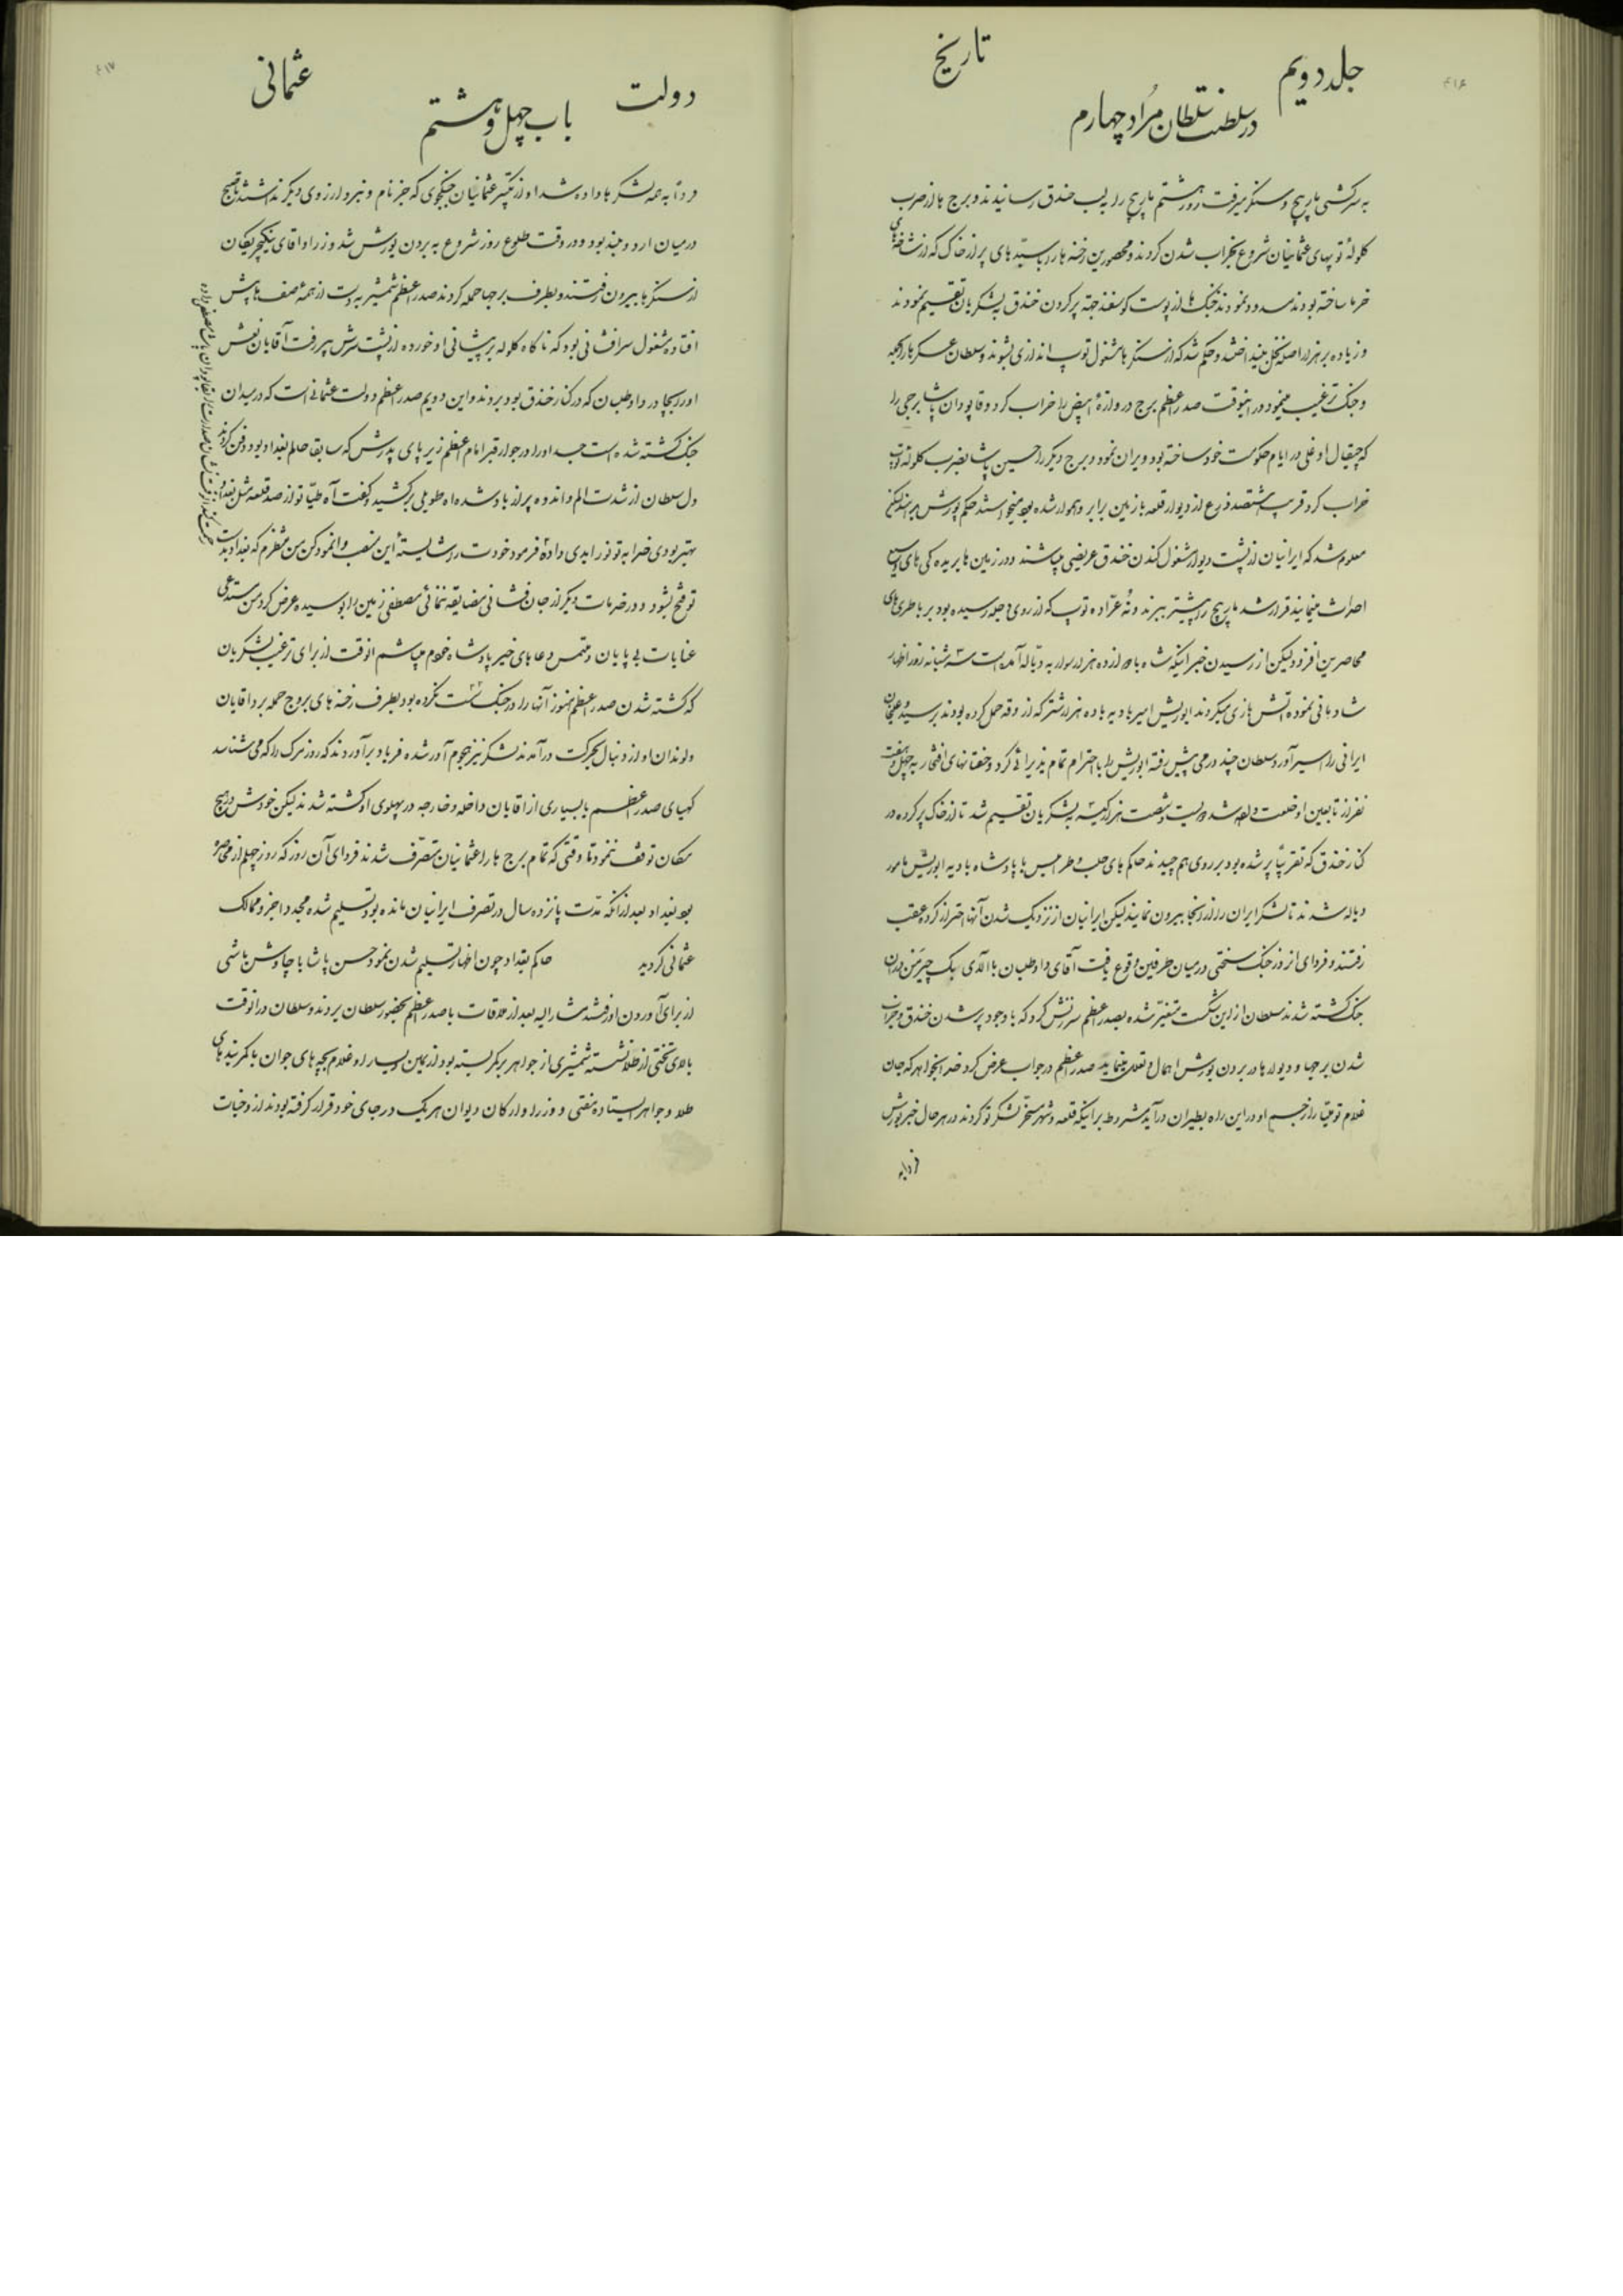 ۴۱۶
جلد دویم
تاریخ
در سلطنت سلطان مراد چهارم
به سرکشی مارپیچ و سنگر میرفت روز هشتم مارپیچ را بلب خندق رسانیدند و برج ها از ضرب
کلولهٔ توپهای عثمانیان شروع بخراب شدن کردند و محصورین رخنه ها را با سبدهای پر از خاک که از شاخهای
خرما ساخته بودند مسدود نمودند خیک ها از پوست کوسفند جهة پر کردن خندق بلشکریان تقسیم نمودند
و زیاده بر هزار اصله نخل بینداختند و حکم شد که از سنکرها مشغول توپ اندازی بشوند و سلطان عسکر را
و جنک ترغیب مینمود در اینوقت صدر اعظم برج دروازهٔ ابیض را خراب کرد و قاپودان پاشا برجی را
که چیقال اوغلی در ایام حکومت خود ساخته بود ویران نمود و برج دیکر را حسین پاشا بضرب کلوله توپ
خراب کرد قریب هشتصد ذرع از دیوار قلعه با زمین برابر و هموار شده بود میخواستند حکم یورش بدهند لیکن
معلوم شد که ایرانیان از پشت دیوار مشغول کندن خندق عریضی میباشند و در زمین ها بریده کی های وسیع
احداث مینمایند قرار شد مارپیچ را پیشتر ببرند و نُه عرّاده توپ که از روی دجله رسیده بود بر باطری های
محاصرین افزود لیکن از رسیدن خبر اینکه شاه با دوازده هزار سوار به دیاله آمده است سه شبانه روز اظهار
شادمانی نموده آتش بازی میکردند ابوریش امیر بادیه با ده هزار شتر که آزوقه حمل کرده بودند برسید و
ایرانی را اسیر آورد سلطان چند قدمی پیش رفته ابوریش را با احترام تمام پذیرائی کرد و خفتانهای افتخار به چهل و هفت
نفر از تابعین او خلعت داده شد دویست و شصت هزار کیسه بلشکریان تقسیم شد تا از خاک پر کرده در
کنار خندق که تقریبًا پر شده بود بر روی هم چیدند حاکم های حلب و طرابلس با پادشاه بادیه ابوریش مامور
دیاله شدند تا لشکر ایران را از آنجا بیرون نمایند لیکن ایرانیان از نزدیک شدن آنها احتراز کرده عقب
رفتند و فردای انروز جنک سختی در میان طرفین وقوع یافت آقای داوطلبان با آلای بیک چیرمَن در آن
جنک کشته شدند سلطان از این شکست متغیّر شده بصدر اعظم سرزنش کرد که با وجود پر شدن خندق و خراب
شدن برجها و دیوارها در بردن یورش اهمال و تعلل مینماید صدر اعظم در جواب عرض کرد خدا بخواهد که جان
غلام تو طیّار از جسم او در این راه بطیران درآید مشروط بر اینکه قلعه و شهر مسخّر لشکر تو کردند در هر حال خبر یورش
فردا به
۴۱۷
دولت
عثمانی
باب چهل و هشتم
فردا به همه لشکرها داده شد آواز تکبیر عثمانیان جنکجوی که جز نام و نبرد آرزوی دیکر نداشتند تا صبح
در میان اردو بلند بود و در وقت طلوع روز شروع به بردن یورش شد وزراء و آقای ینکیچریکان
از سنکرها بیرون رفتند و بطرف برجها حمله کردند صدر اعظم شمشیر بدست از همهٔ صف ها پیش
افتاده مشغول سرافشانی بود که ناکاه کلوله بر پیشانی او خورده از پشت سرش بیرون رفت آقایان نعش
او را بجادر داوطلبان که در کنار خندق بود بردند و این دویم صدر اعظم دولت عثمانی است که در میدان
جنک کشته شده است جسد او را در جوار قبر امام اعظم زیر پای پدرش که سابقا حاکم بغداد بود دفن کردند
دل سلطان از شدت الم و اندوه پر از باد شده آه طویلی برکشید و کفت آه طیّار تو از صد قلعه مثل بغداد
بهتر بودی خدا به تو نور ابدی دهاد فرمود خودت را شایستهٔ این منصب وانمود کن من منتظرم که بغداد بدست
تو فتح بشود و در خدمات دیکر از جان فشانی مضایقه ننمائی مصطفی زمین را بوسیده عرض کرد من مستدعی
عنایات بی پایان و ملتمس دعاهای خیر پادشاه خودم میباشم آنوقت از برای ترغیب لشکریان
که کشته شدن صدر اعظم هنوز آنها را در جنک سست نکرده بود بطرف رخنه های بروج حمله برد آقایان
ولوندان او از دنبال بحرکت درآمدند لشکر نیز هجوم آور شده فریاد برآوردند که روز مرک را که می شناسد
کهیای صدر اعظم با بسیاری از آقایان داخله و خارجه در پهلوی او کشته شدند لیکن خودش در هیچ
مکان توقف ننمود تا وقتی که تمام برج ها را عثمانیان متصرّف شدند فردای آن روز که روز چهلم از محاصره
بود بغداد بعد از آنکه مدّت پانزده سال در تصرف ایرانیان مانده بود تسلیم شده مجددا جزو ممالک
عثمانی کردید حاکم بغداد چون اظهار تسلیم شدن نمود حسن پاشا با چاوش باشی
از برای آوردن او رفتند مشارالیه بعد از ملاقات با صدر اعظم بحضور سلطان بردند و سلطان در آنوقت
بالای تختی از طلا نشسته شمشیری از جواهر بر کمر بسته بود از یمین و یسار او غلام بچه های جوان با کمربندهای
طلا و جواهر ایستاده مفتی و وزراء و ارکان دیوان هر یک در جای خود قرار کرفته بودند از وحیات